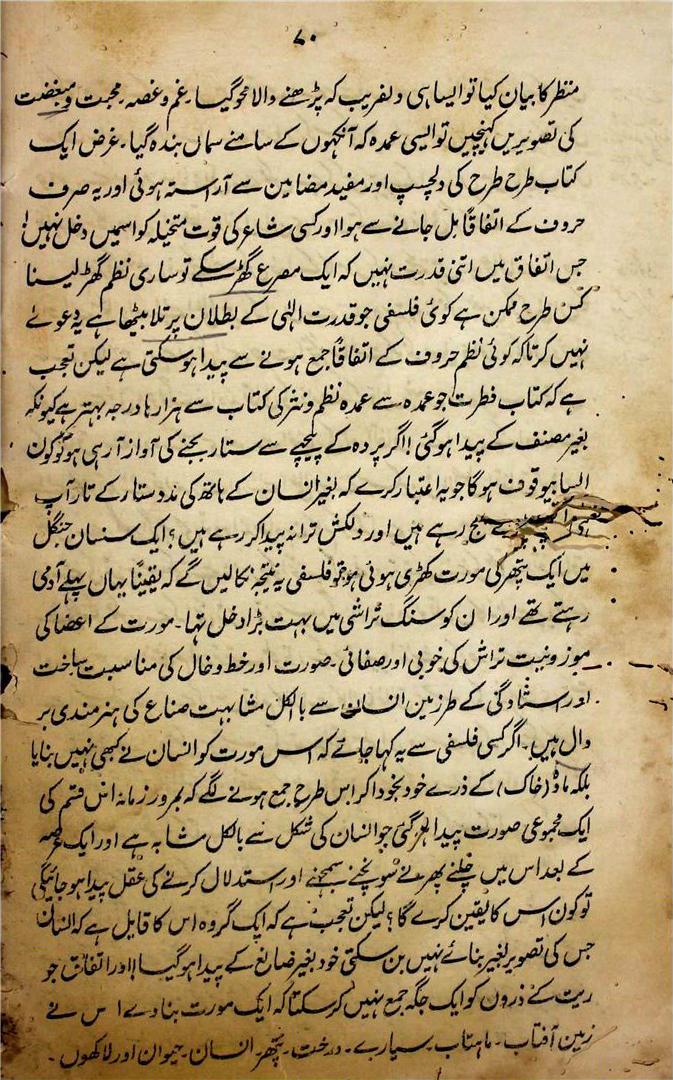 ۷۰
منظر کا بیان کیا تو ایسا ہی دلفریب کہ پڑھنے والا محو گیا۔ غم و غصہ۔ محبت و مبغضت
کی تصویریں کہنچیں تو ایسی عمدہ کہ آنکہوں کے سامنے سماں بندہ گیا۔ غرض ایک
کتاب طرح طرح کی دلچسپ اور مفید مضامین سے آراستہ ہوئی اور یہ صرف
حروف کے اتفاقاً مل جانے سے ہوا اور کسی شاعر کی قوت متخیلہ کو اسمیں دخل نہیں!
جس اتفاق میں اتنی قدرت نہیں کہ ایک مصرع گھڑ سکے تو ساری نظم گھڑ لینا
کس طرح ممکن ہے کوئی فلسفی جو قدرت الٰہی کے بطلان پر تلا بیٹھا ہے یہ دعوئے
نہیں کرتا کہ کوئی نظم حروف کے اتفاقاً جمع ہونے سے پیدا ہو سکتی ہے لیکن تعجب
ہے کہ کتاب فطرت جو عمدہ سے عمدہ نظم و نثر کی کتاب سے ہزارہا درجہ بہتر ہے کیونکہ
بغیر مصنف کے پیدا ہو گئی! اگر پردہ کے پیچہے سے ستار بجنے کی آواز آ رہی ہو تو کون
ایسا بیوقوف ہوگا جو یہ اعتبار کرے کہ بغیر انسان کے ہاتھ کی مدد ستار کے تار آپ
سے بج رہے ہیں اور دلکش ترانہ پیدا کر رہے ہیں؟ ایک سنسان جنگل
میں ایک پتھر کی مورت کھڑی ہوئی ہو تو فلسفی یہ نتیجہ نکالیں گے کہ یقیناً یہاں پہلے آدمی
رہتے تھے اور ان کو سنگ تراشی میں بہت بڑا دخل تہا۔ مورت کے اعضا کی
موزونیت تراش کی خوبی اور صفائی۔ صورت اور خط و خال کی مناسبت ساخت
اور استادگی کے طرز میں انسان سے بالکل مشابہت صناع کی ہنرمندی پر
دال ہیں۔ اگر کسی فلسفی سے یہ کہا جائے کہ اس مورت کو انسان نے کبھی نہیں بنایا
بلکہ مادہ (خاک) کے ذرے خود بخود آ کر اس طرح جمع ہونے لگے کہ بمرور زمانہ اس قسم کی
ایک مجموعی صورت پیدا ہو گئی جو انسان کی شکل سے بالکل مشابہ ہے اور ایک عرصہ
کے بعد اس میں چلنے پھرنے سونچنے سمجہنے اور استدلال کرنے کی عقل پیدا ہو جائیگی
تو کون اس کا یقین کرے گا؟ لیکن تعجب ہے کہ ایک گروہ اس کا قایل ہے کہ انسان
جس کی تصویر بغیر بنائے نہیں بن سکتی خود بغیر صانع کے پیدا ہو گیا!! اور اتفاق جو
ریت کے ذرون کو ایک جگہ جمع نہیں کر سکتا کہ ایک مورت بنا دے اس نے
زمین آفتاب۔ ماہتاب۔ سیارے۔ درخت۔ پتھر۔ انسان۔ حیوان اور لاکھوں۔